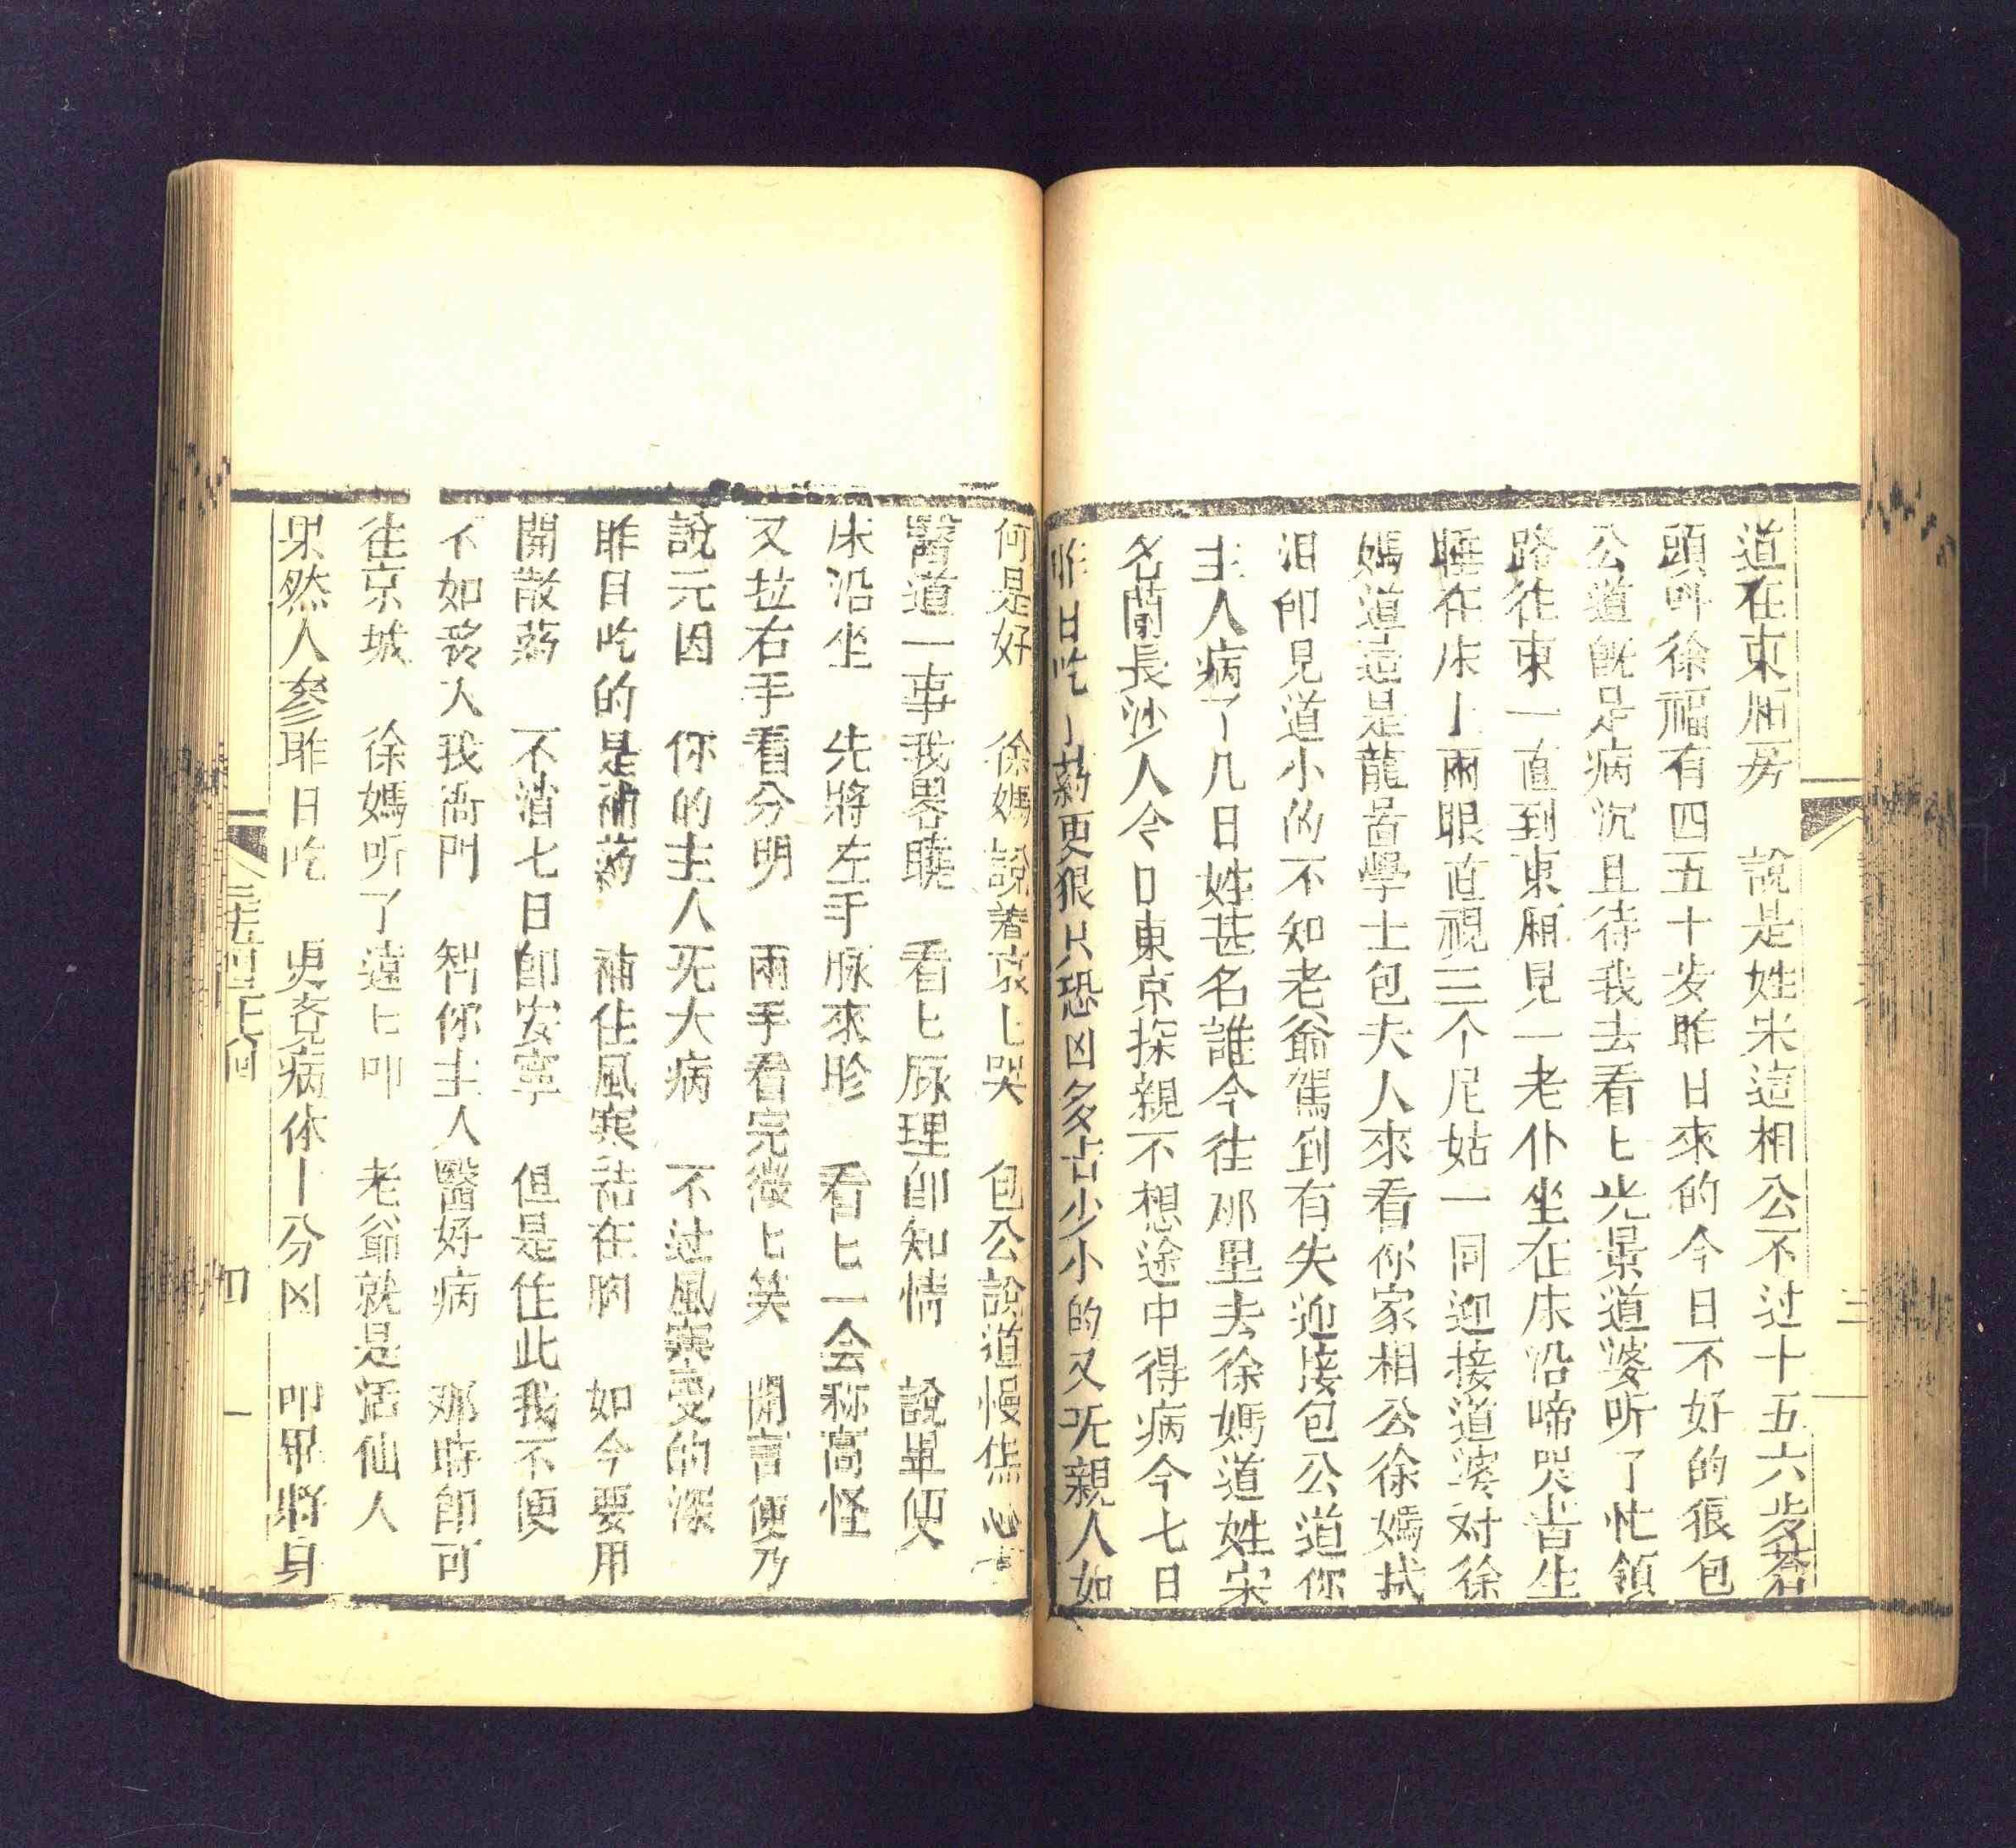 道在東廂房　說是姓宋這相公不过十五六歩蒼
頭呌徐福有四五十歩昨日來的今日不好的狠包
公道旣是病沉且待我去看匕光景道婆听了忙領
路徃東一直到東廂見一老仆坐在床沿啼哭書生
睡在床上兩眼直視三个尼姑一同迎接道婆对徐
媽道這是龍啚學士包大人來看你家相公徐媽拭
泪卽見道小的不知老爺駕到有失迎接包公道你
主人病了几日姓甚名誰今徃那里去徐媽道姓宋
名蘭長沙人今日東京探親不想途中得病今七日
昨日吃了药更狠只恐凶多吉少小的又旡親人如
何是好　徐媽說着哀匕哭　包公說道慢焦心
醫道一事我畧曉　看匕脉理卽知情　說畢便
床沿坐　先將左手脉來胗　看匕一会称高怪
又拉右手看分明　兩手看完微匕笑　開言便乃
說元因　你的主人旡大病　不过風寒受的深
昨日吃的是補药　補住風寒結在胸　如今要用
開散药　不消七日卽安寧　但是住此我不便
不如丧人我衙門　智你主人醫好病　那時卽可
徃京城　徐媽听了連匕叩　老爺就是活仙人
果然人參昨日吃　病体十分凶　叩畢將身
四
三